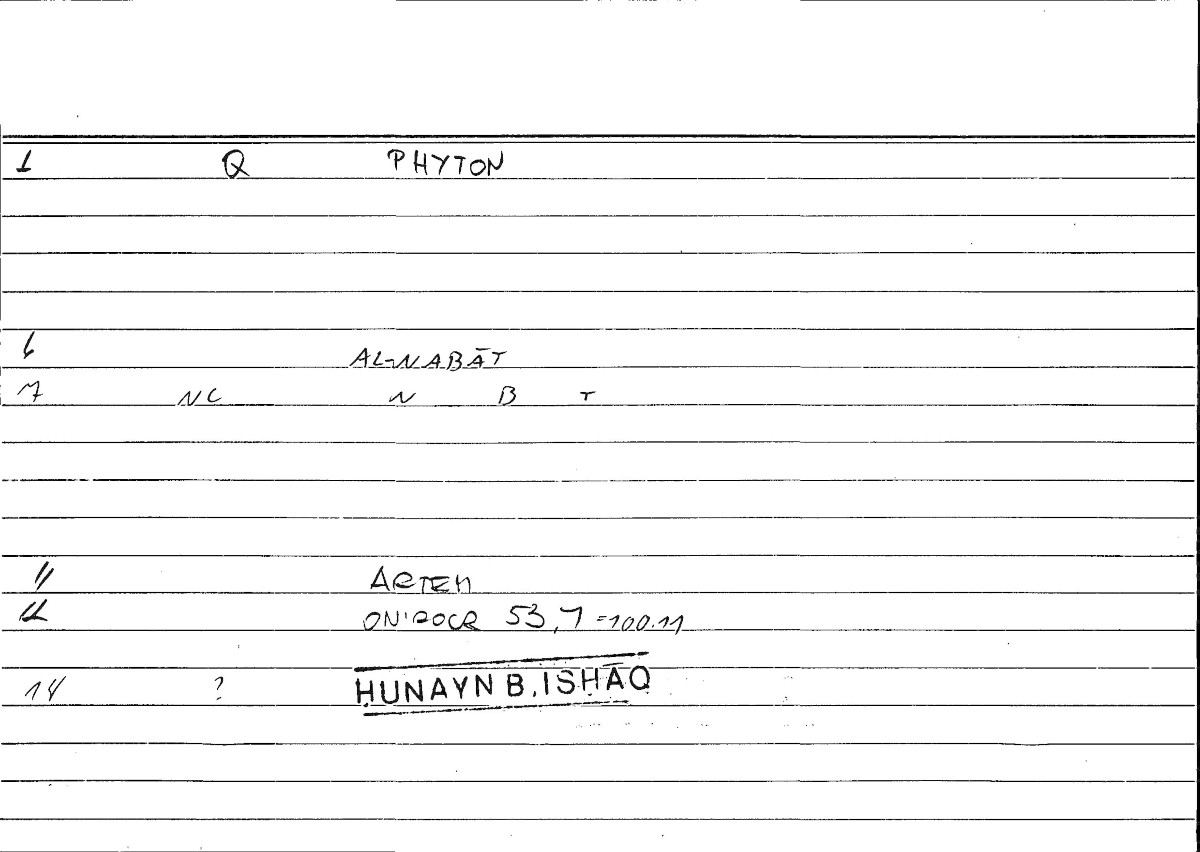 1 Q PHYTON
6 AL-NABĀT
7 NC N B T
11 ARTEM
12 ONIROCR 53,7 =100.11
14 ? ḤUNAYN B. ISḤĀQ